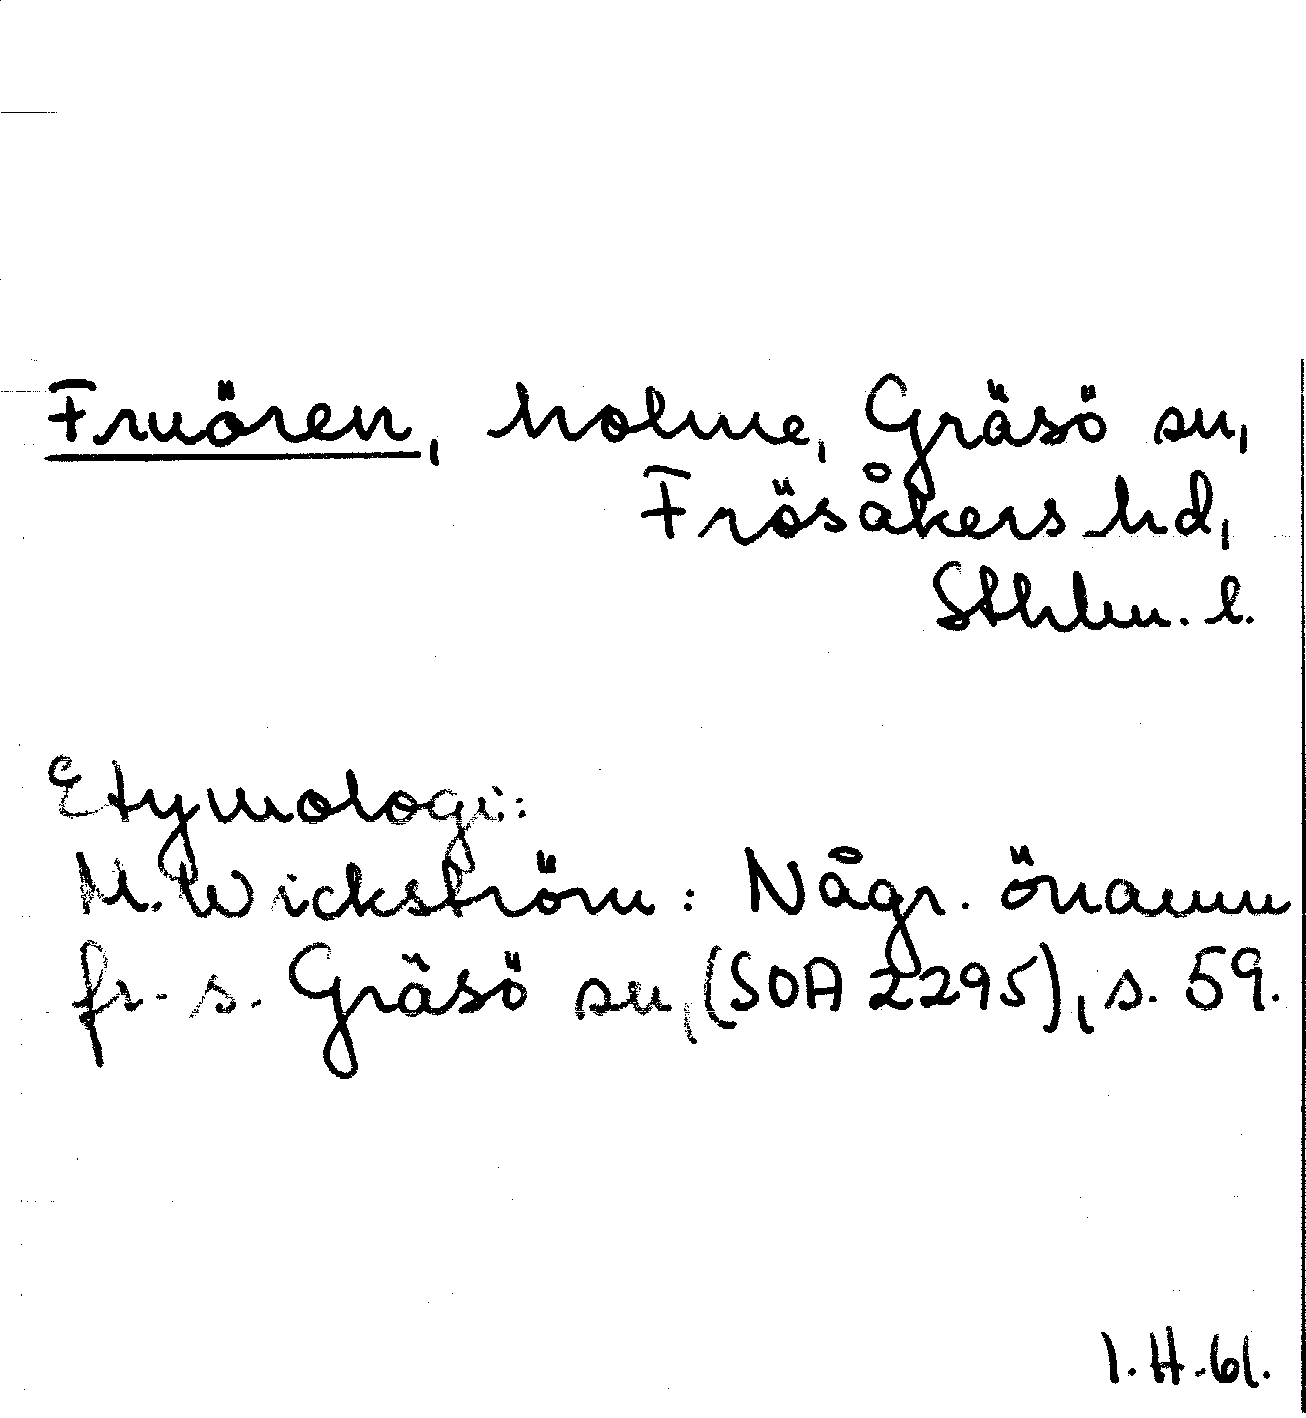 Fruören, holme, Gräsö sn,
Frösåkers hd,
Sthlm. l.
Etymologi:
M. Wickström: Någr. önamn
fr. s. Gräsö sn, (SOA 2295), s. 59.
I.H.61.